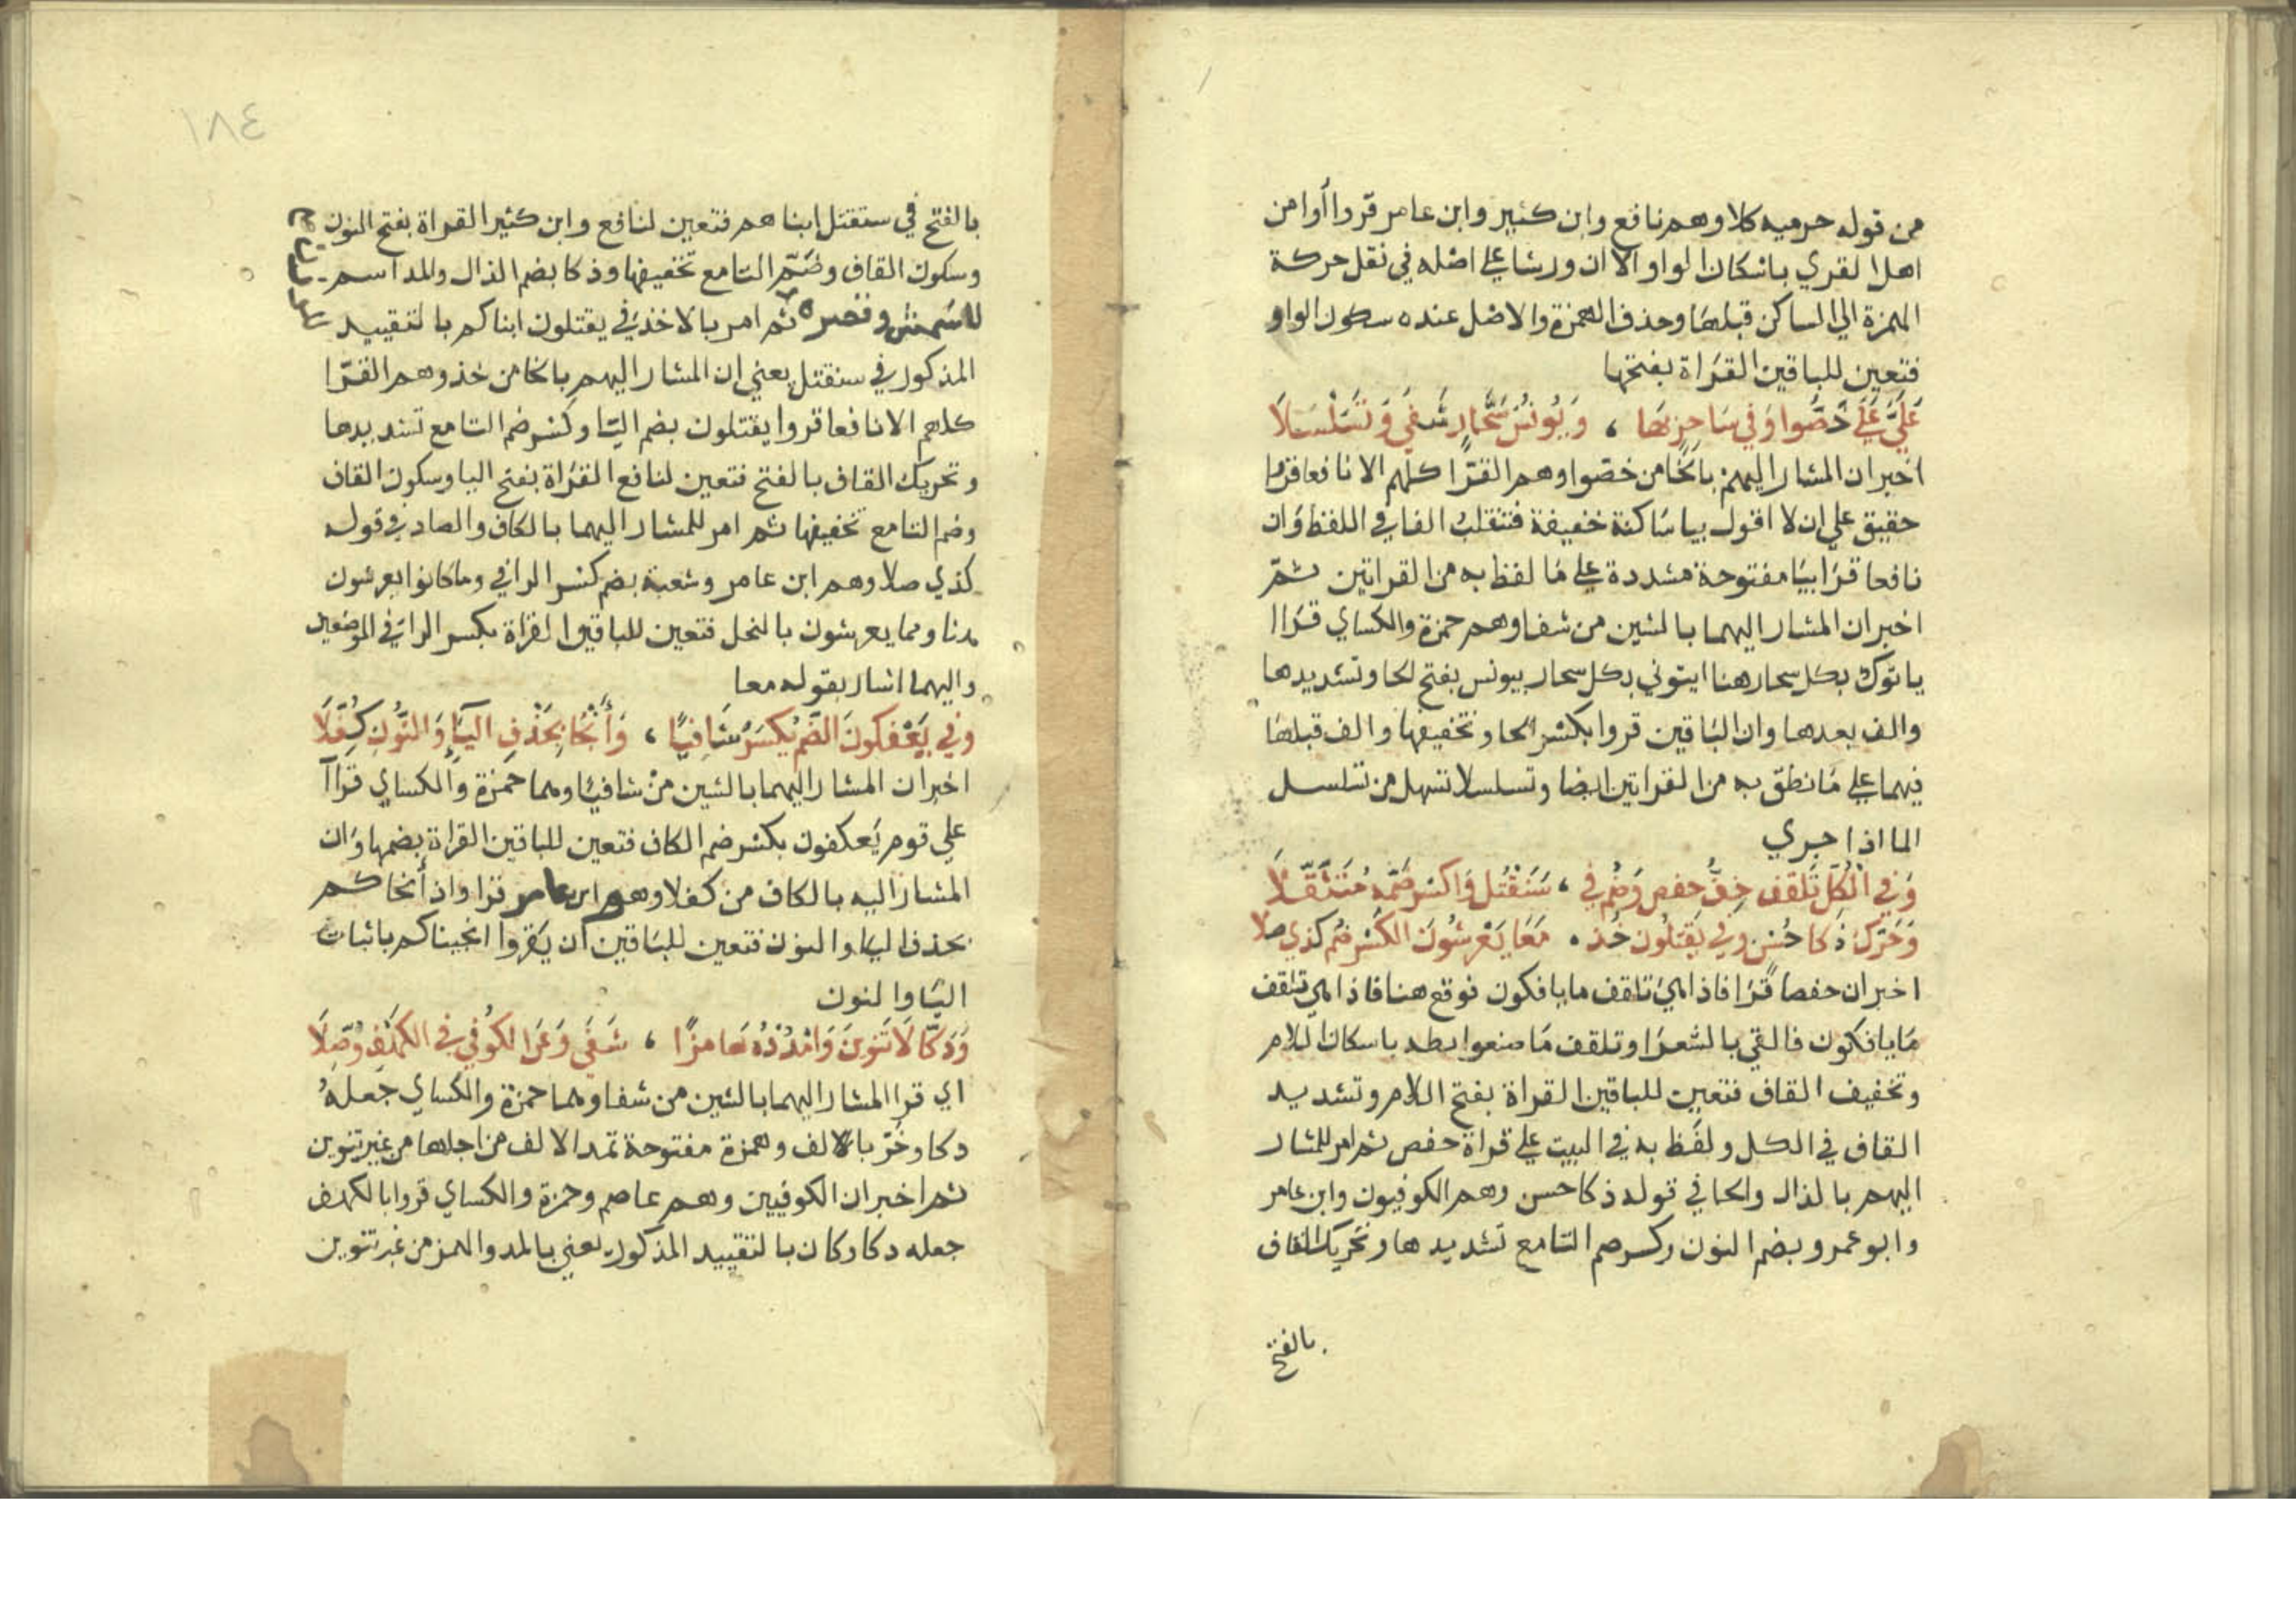 من قوله حرميه كلا وهم نافع وابن كثير وابن عامر قروا أوامن
اهل القري باسكان الواو الا ان ورشا علي اصله في نقل حركة
الهمزة الي الساكن قبلها وحذف الهمزة والاصل عنده سكون الواو
فتعين للباقين القراة بفتحها
عَلَيَّ عَلَي خَصُّوا وَفي سَاحِرٍ بهَا ، وَيُونُسَ سَحَّارٍ شَفي وَتَسَلْسَلاَ
اخبر ان المشار اليهم بالخا من خصوا وهم القرا كلهم الا نافعا قروا
حقيق علي ان لا اقول بيا ساكنة خفيفة فتنقلب الفا في اللفظ وان
نافعا قرا بيا مفتوحة مشددة علي ما لفظ به من القراتين ثم
اخبر ان المشار اليهما بالشين من شفا وهم حمزة والكساي قراا
ياتوك بكل سحار هنا ايتوني بكل سحار بيونس بفتح لحا وتشديدها
والف بعدها وان الباقين قروا بكسر الحا وتخفيفها والف قبلها
فيهما علي ما نطق به من القراتين ايضا وتسلسلا تسهل من تسلسل
الما اذا جري
وَفي الْكُل تَلقف خِفُّ حفص وَضُم في ، سَنَقْتُل وَاكسر ضَمَّه مُتَثَقّلاَ
وَحَرّك ذَكا حُسْن وفي يَقتلون خُذ ، مَعًا يَعْرِشُونَ الكَسْر ضُم كذي صلا
اخبر ان حفصا قرا فاذا هي تلقف ما يافكون فوقع هنا فاذا هي تلقف
ما يافكون فالقي بالشعرا وتلقف ما صنعوا بطه باسكان اللام
وتخفيف القاف فتعين للباقين القراة بفتح اللام وتشديد
القاف في الكل ولفظ به في البيت علي قراة حفص ثم امر للمشار
اليهم بالذال والحا في قوله ذكا حسن وهم الكوفيون وابن عامر
وابو عمرو بضم النون وكسر ضم التا مع تشديدها وتحريك القاف
بالفتح
١٨٤
بالفتح في سنقتل ابناهم فتعين لنافع وابن كثير القراة بفتح النون
وسكون القاف وضم التا مع تخفيفها وذكا بضم الذال والمد اسم
للشمس وقصره ثم امر بالاخذ في يقتلون ابناكم بالتقييد
المذكور في سنقتل يعني ان المشار اليهم بالخا من خذ وهم القرا
كلهم الا نافعا قروا يقتلون بضم اليا وكسر ضم التا مع تشديدها
وتحريك القاف بالفتح فتعين لنافع القراة بفتح اليا وسكون القاف
وضم التا مع تخفيفها ثم امر للمشار اليهما بالكاف والصاد في قوله
كذي صلا وهم ابن عامر وشعبة بضم كسر الرا في وما كانوا يعرشون
هنا ومما يعرشون بالنحل فتعين للباقين القراة بكسر الرا في الموضعين
واليهما اشار بقوله معا
وفي يَعْكفُونَ الضَّمُ يُكسَرُ شَافِيًا ، وَأَنْجَا بِحَذْفِ اليَا وَالنُّونِ كُفّلاَ
اخبر ان المشار اليهما بالشين من شافيا وهما حمزة والكساي قراآ
علي قوم يعكفون بكسر ضم الكاف فتعين للباقين القراة بضمها وان
المشار اليه بالكاف من كفلا وهو ابن عامر قرا واذ أنجاكم
بحذف اليا والنون فتعين للباقين ان يقروا انجيناكم باثبات
اليا والنون
وَدَكّا لاَ تَنوِينَ وَامْدُدْهُ هَامزًا ، شَفَى وَعَن الكُوفي في الكَهْفِ وُصِّلاَ
اي قرا المشار اليهما بالشين من شفا وهما حمزة والكساي جعله
دكا وخر بالالف وهمزة مفتوحة تمد الالف من اجلها من غير تنوين
ثم اخبر ان الكوفيين وهم عاصم وحمزة والكساي قروا بالكهف
جعله دكا وكان بالتقييد المذكور يعني بالمد والهمز من غير تنوين